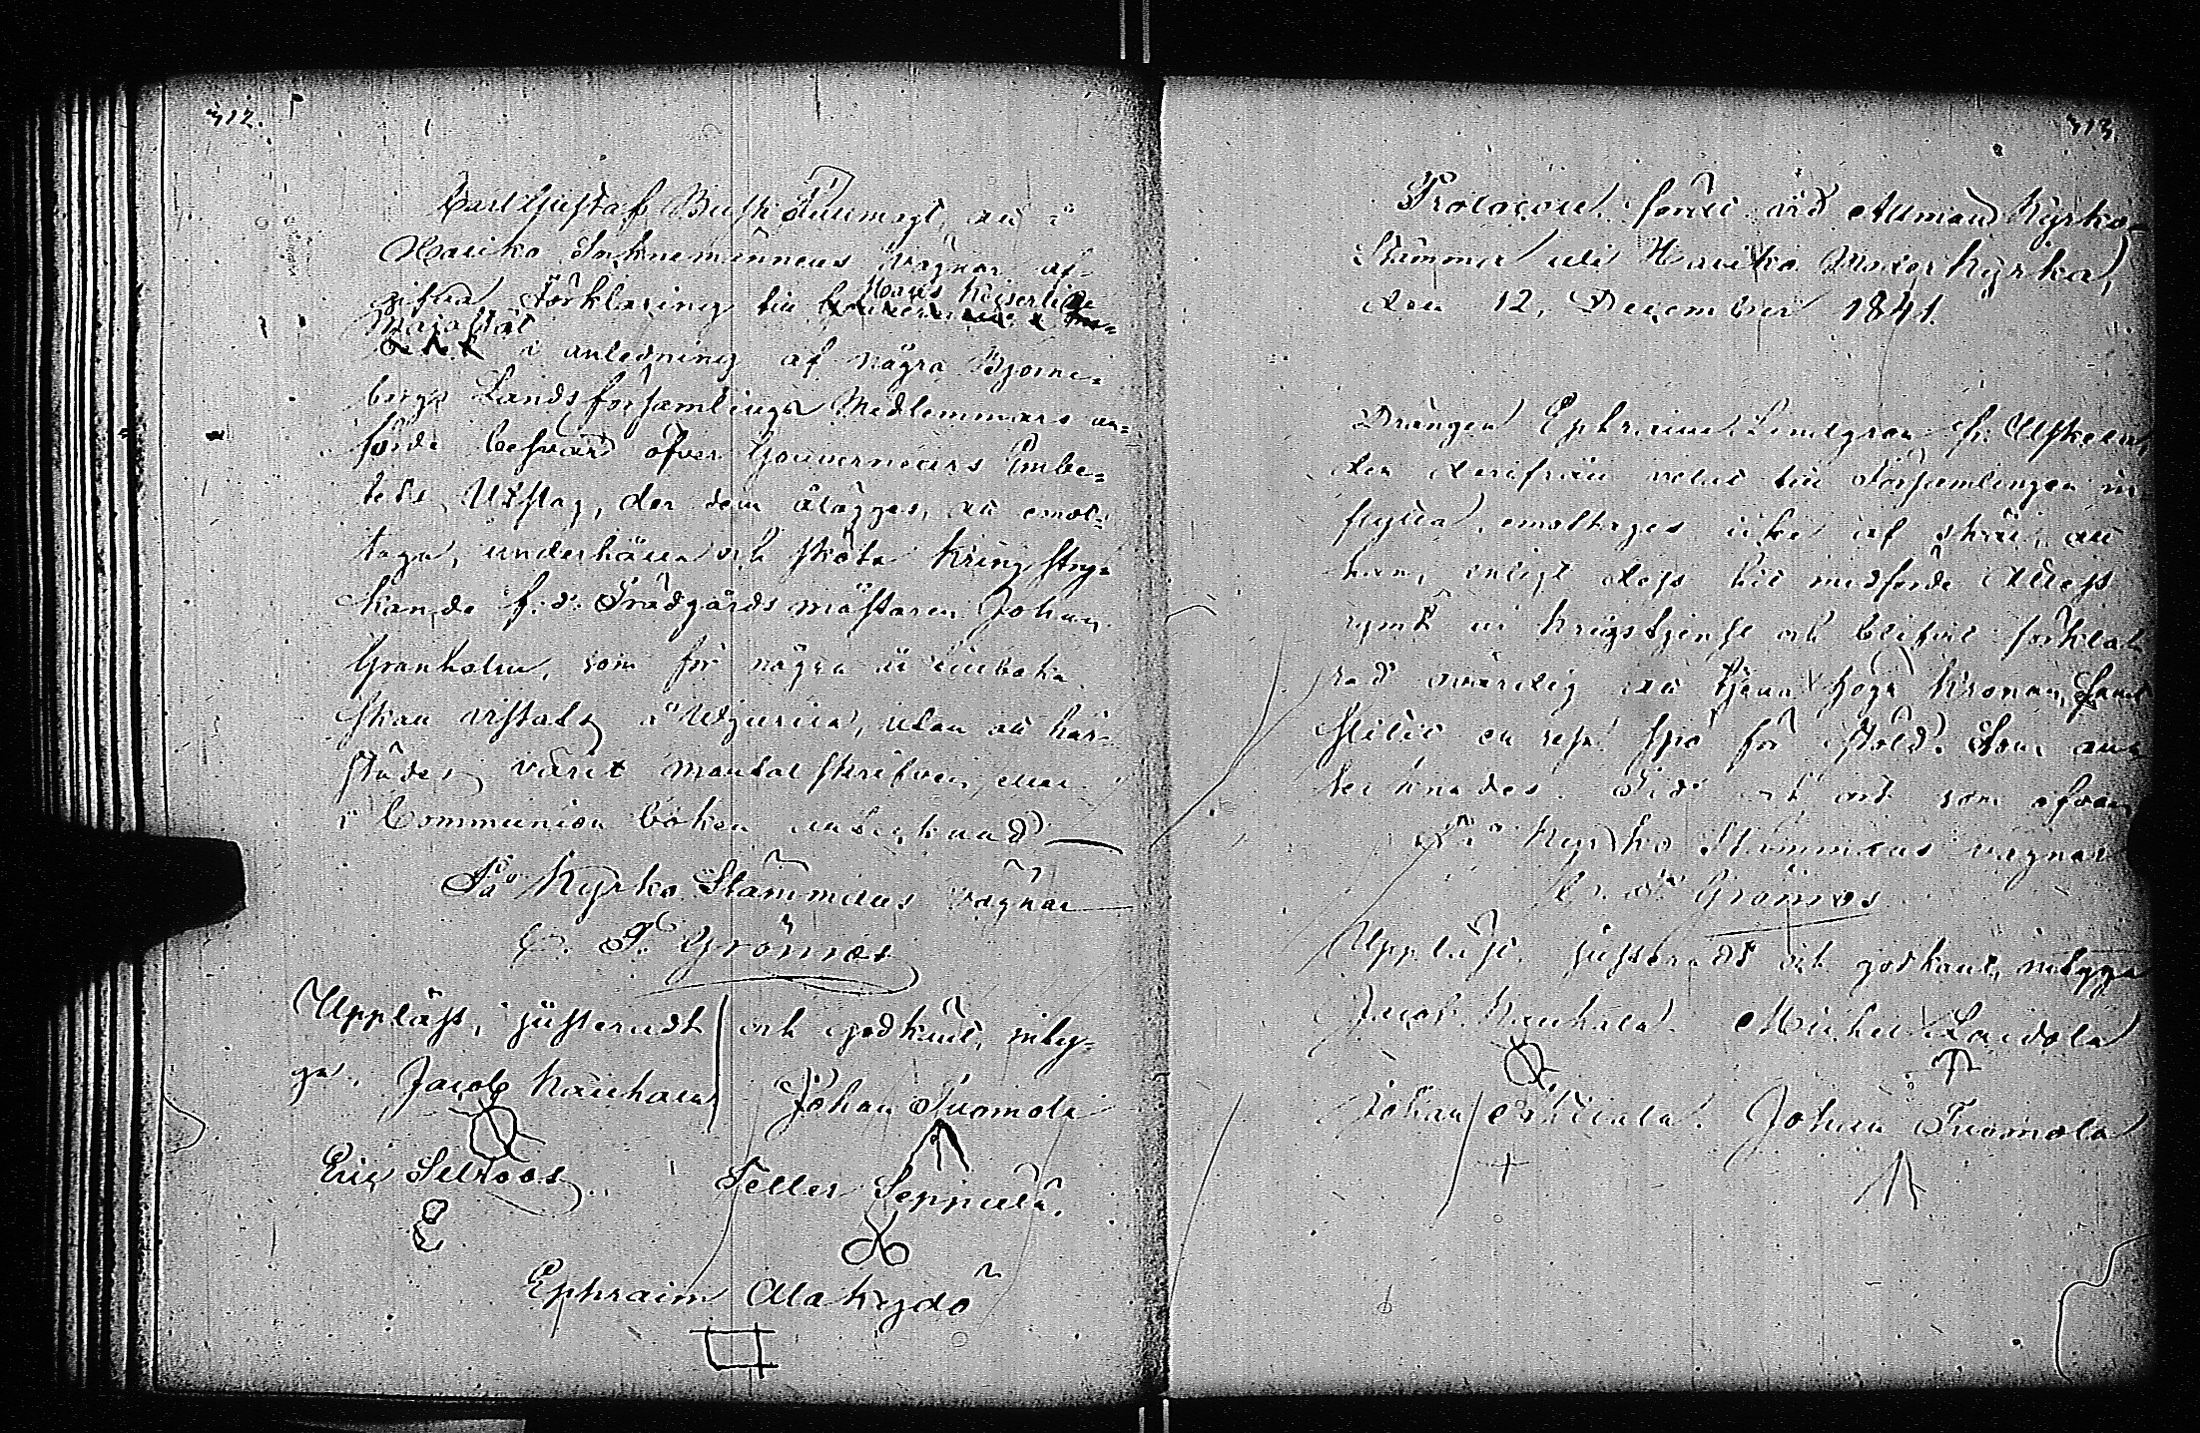 312.
Carl Gustaf Busk fullmagt, att å
Hauiko Soknemännens vägnar af-
gifva Förklaring till Hans Keiserliga
Majestät
i anledning af några Björne-
borgs Landsförsamlings Medlemmars an-
förde besvär öfver Gouverneurs Embe-
tets Utslag, der dem ålägges, att emot-
taga, underhålla och sköta kringstry-
kande f. d. Trädgårdsmästaren Johan
Granholm, som för några år tillbaka
skall vistats å Ulfvila, utan att här-
städes varit mantalskrifven, eller
i Communion boken antecknad
På Kyrko Stämmans vägnar
C. F. Grönros
Uppläst, justeradt och godkänt, intyg-
ga. Jacob Kauhala Johan Tuomola
Eric Selroos Feller Seppälä.
Ephraim Alakydö
313
Protocoll fördt vid Allmän Kyrko-
Stämma uti Hauiko Moderkyrka,
den 12, December 1841.
Drängen Ephraim Lindgren fr.
den derifrån velat till Församlingen in
flytta, emottages icke af skäl, att
han, enligt dess hit medförde Attest
rymt ur krigstjenst och blifvit förkla
rad ovärdig att tjena höga Kronan, samt
slitit en resa spö för stöld. Som an
tecknades. Tid och ort som ofvan
På Kyrko Stämmans vägnar
C. F. Grönros
Uppläst, justeradt och godkänt, intyga
Jacob Kauhala. Michel Laidola
Johan Johan Tuomola